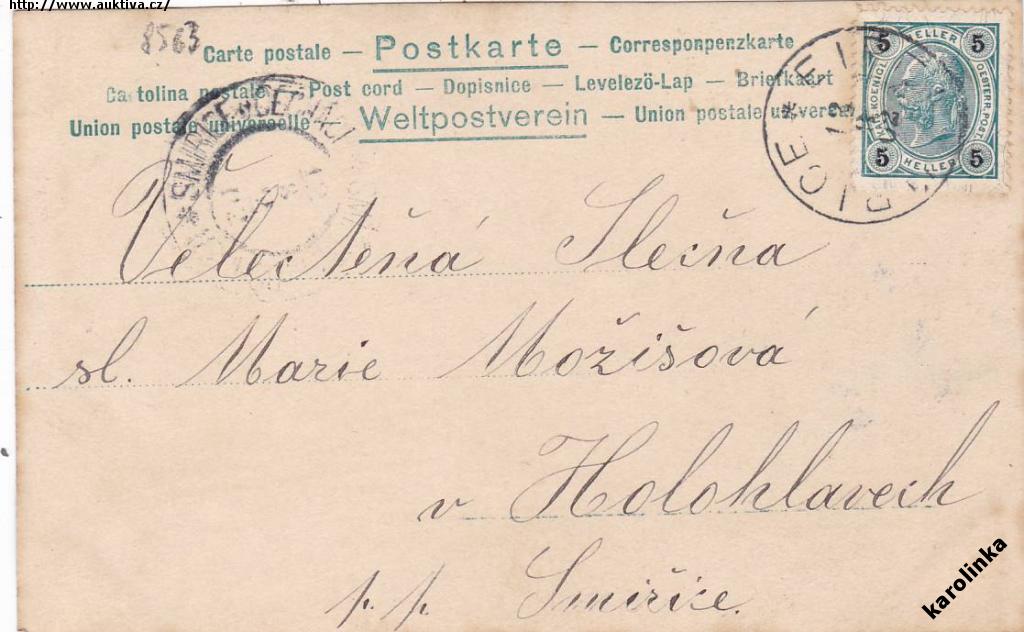 http://www.auktiva.cz/
8563
Carte postale — Postkarte — Corresponpenzkarte
Cartolina postale — Post cord — Dopisnice — Levelezö-Lap — Briefkaart
Union postale universelle — Weltpostverein — Union postale universelle
5 HELLER 5
KAIS. KOENIGL. OESTERR. POST
5 HELLER 5
Velectěná Slečna
sl. Marie Možišová
v Holohlavech
p. p. Smiřice.
karolinka